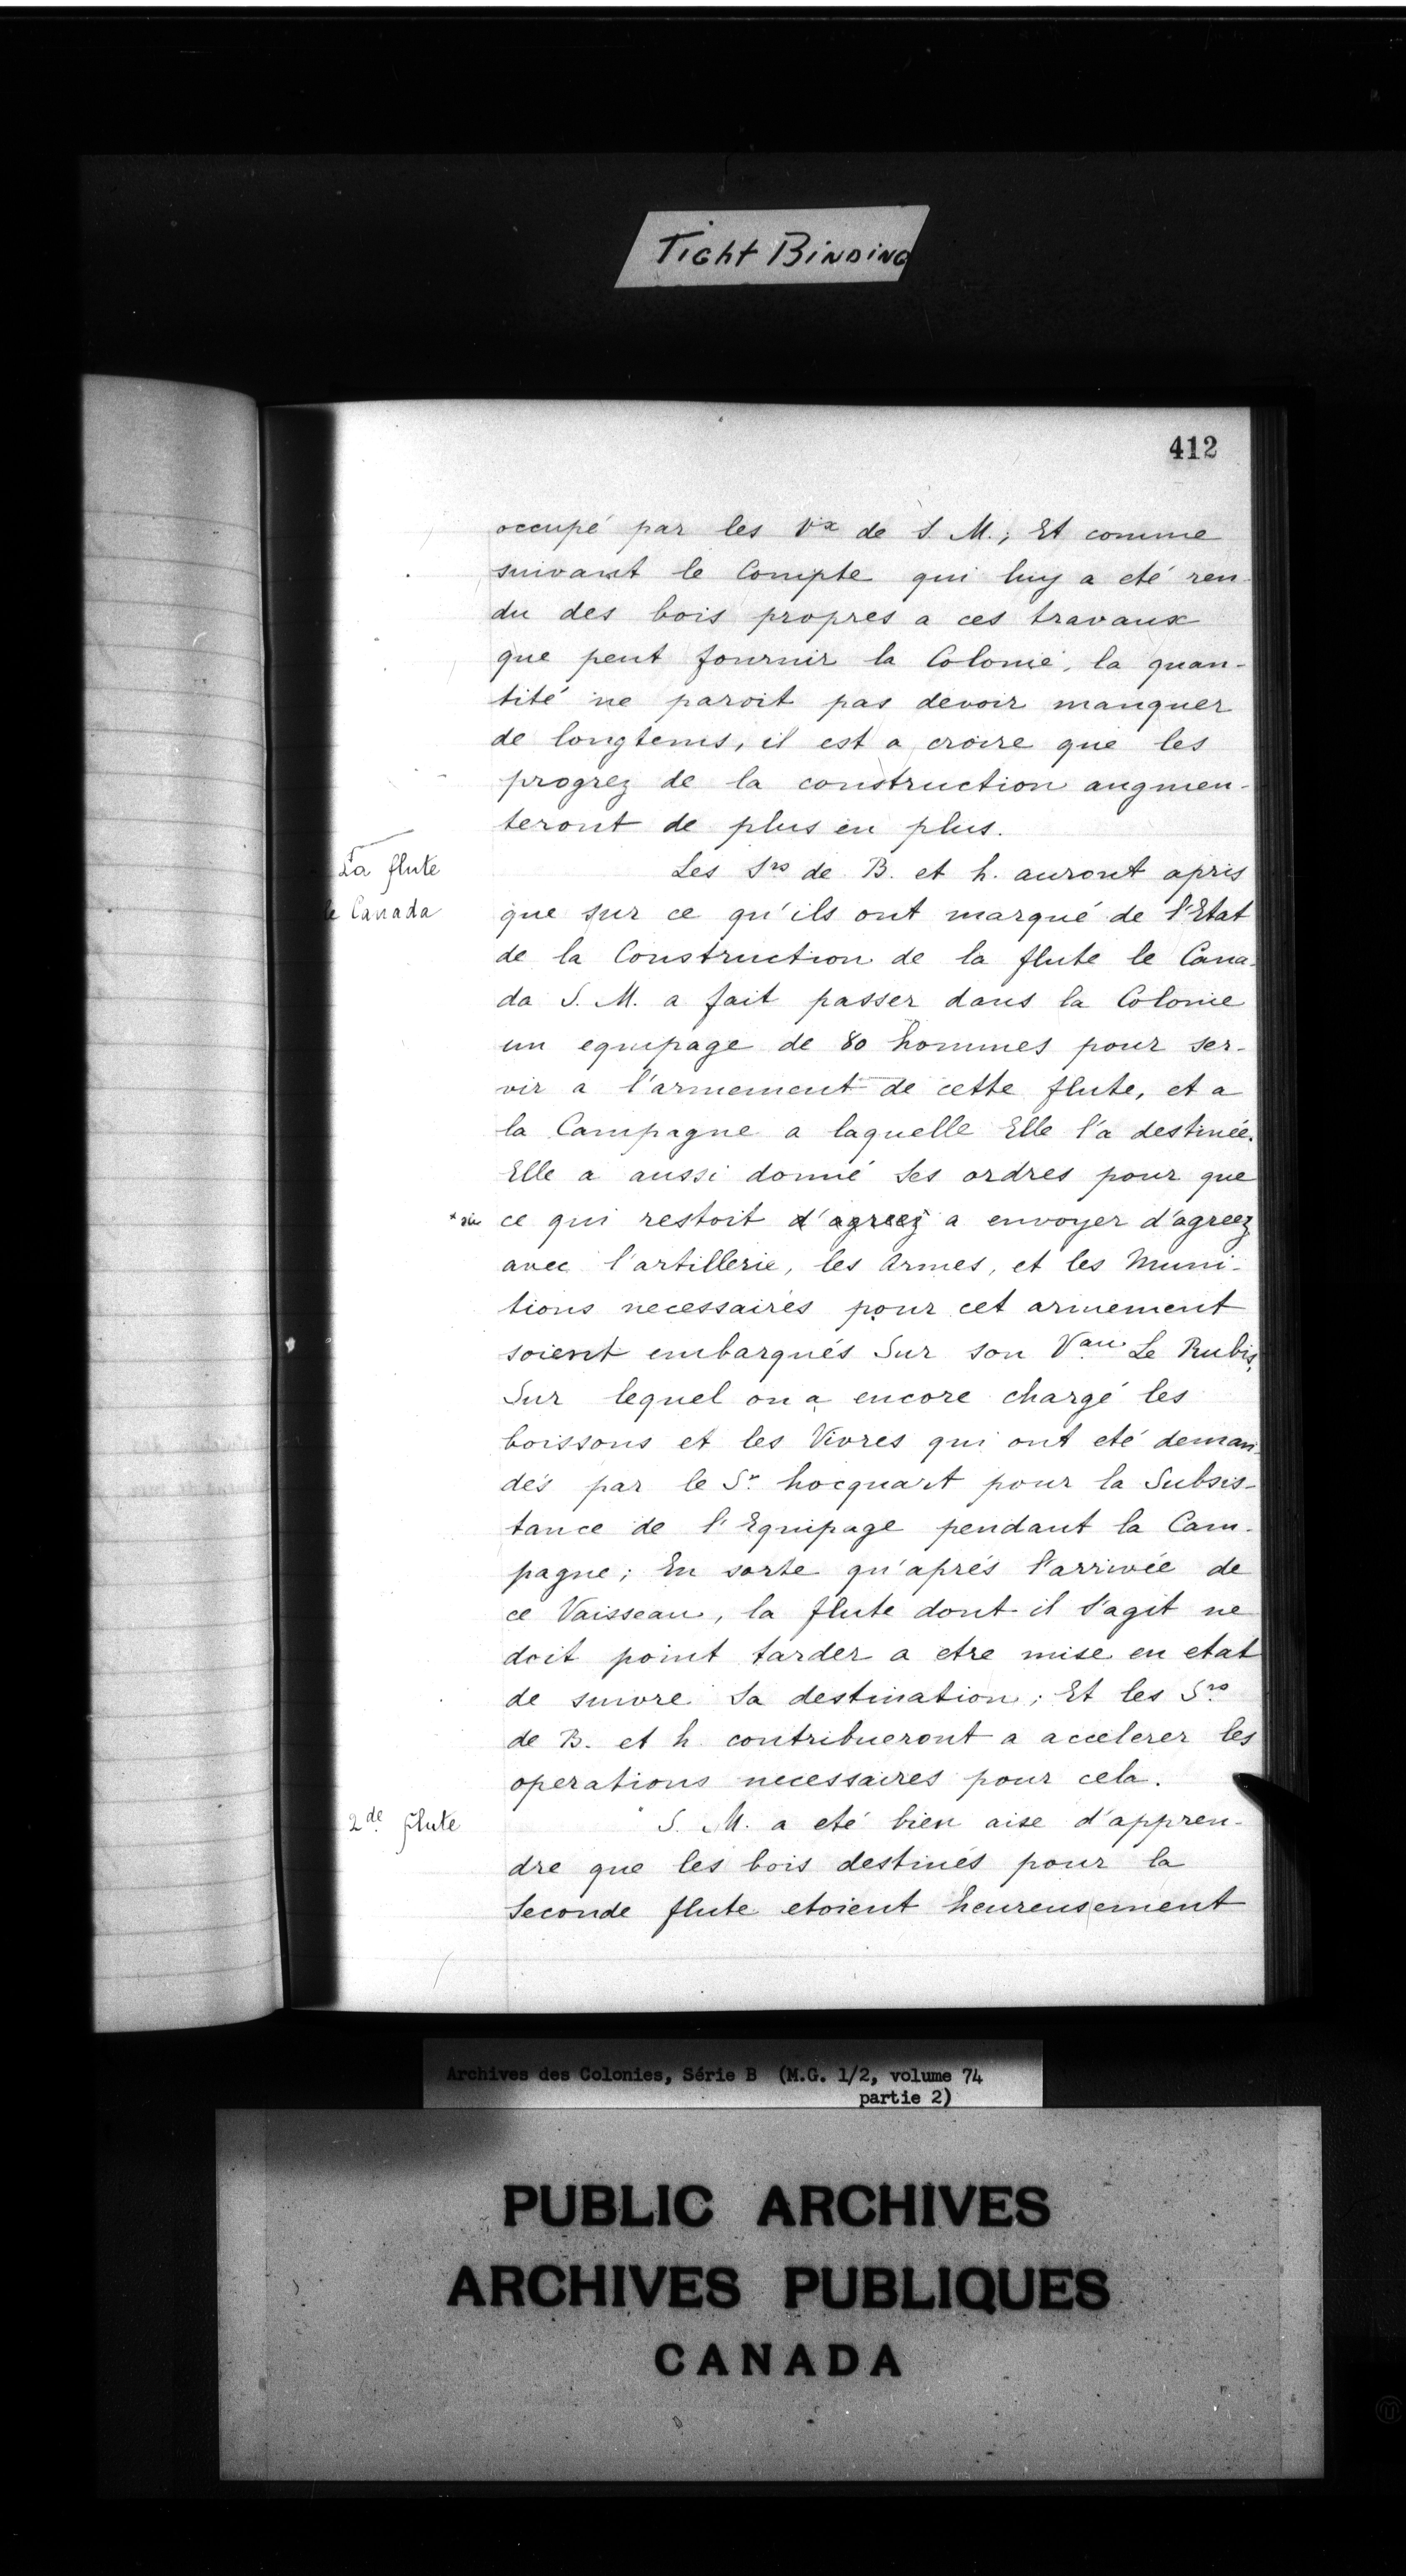 Tight Binding
412
occupé par les Vx de S M.; Et comme
suivant le Compte qui luy a eté ren-
du des bois propres a ces travaux
que peut fournir la Colonie, la quan-
tité ne paroit pas devoir manquer
de longtems, il est a croire que les
progrez de la construction augmen-
teront de plus en plus.
La flute
le Canada
Les Srs de B. et h. auront apris
que sur ce qu'ils ont marqué de l'Etat
de la Construction de la flute le Cana-
da S. M. a fait passer dans la Colonie
un equipage de 80 hommes pour ser-
vir a l'armement de cette flute, et a
la Campagne a laquelle Elle l'a destinée.
Elle a aussi donné Ses ordres pour que
ce qui restoit d'agreez a envoyer d'agreez
avec l'artillerie, les Armes, et les Muni-
tions necessaires pour cet armement
soient embarqués Sur son Vau Le Rubis,
Sur lequel on a encore chargé les
boissons et les Vivres qui ont eté deman-
dés par le Sr. hocquart pour la Subsis-
tance de l'Equipage pendant la Cam-
pagne; En sorte qu'aprés l'arrivée de
ce Vaisseau, la flute dont il s'agit ne
doit point tarder a etre mise en etat
de suivre Sa destination; Et les Srs
de B. et h. contribueront a accelerer les
operations necessaires pour cela.
2de flute
S. M. a eté bien aise d'appren-
dre que les bois destinés pour la
Seconde flute etoient heureusement
Archives des Colonies, Série B (M.G. 1/2, volume 74
partie 2)
PUBLIC ARCHIVES
ARCHIVES PUBLIQUES
CANADA